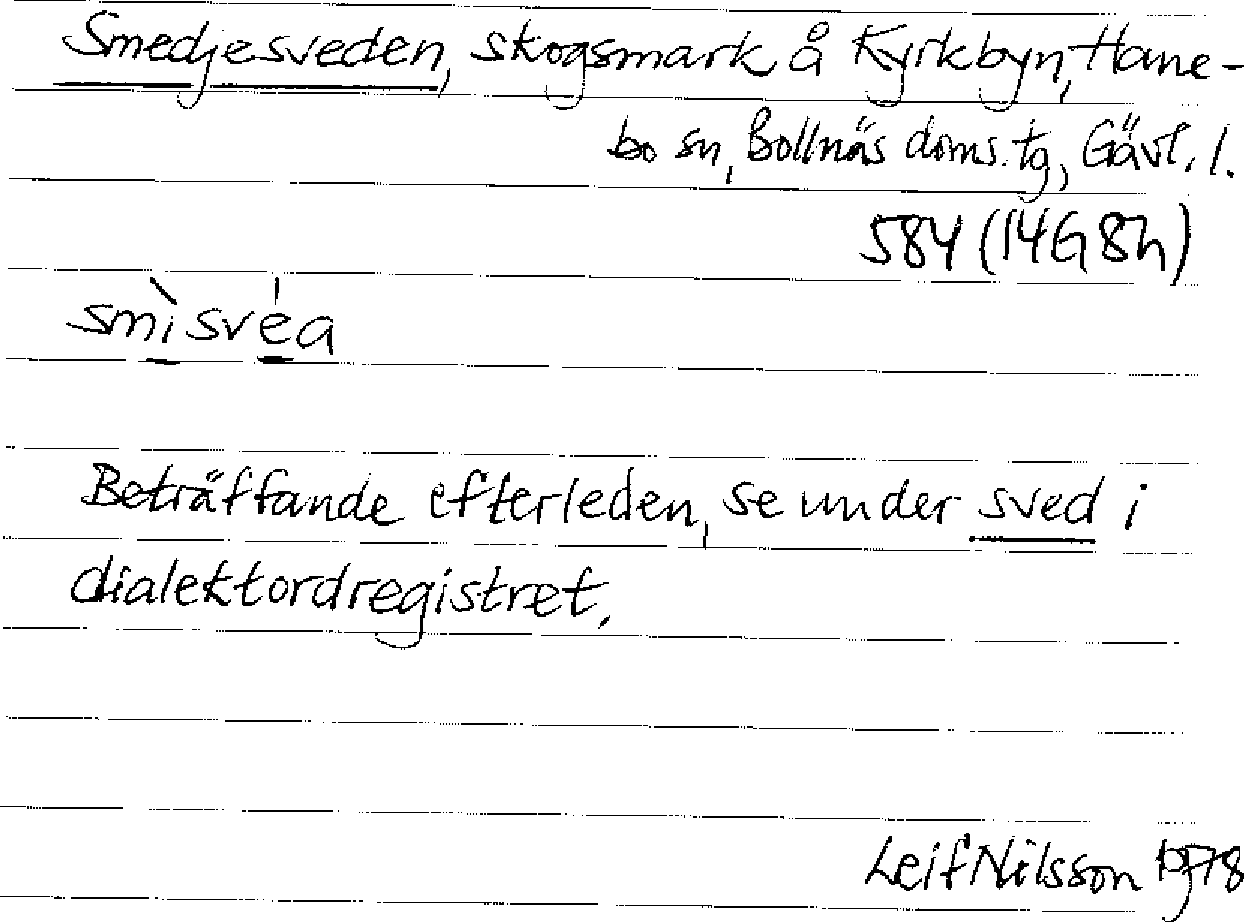 Smedjesveden, skogsmark å Kyrkbyn, Hane-
bo sn, Bollnäs doms.tg, Gävl. l.
584 (14G 8h)
smìsvéa
Beträffande efterleden, se under sved i
dialektordregistret.
Leif Nilsson 1978